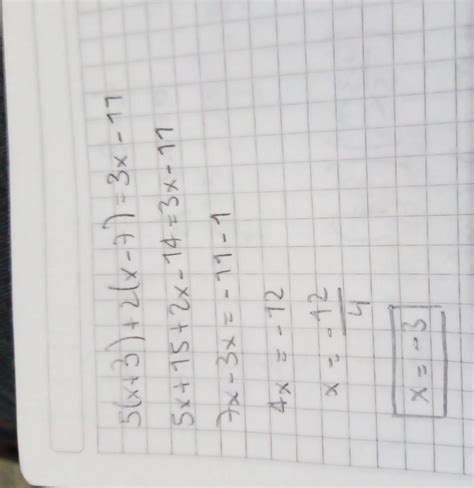 5(x+3)+2(x-7)=3x-11
5x+15+2x-14=3x-11
7x-3x=-11-1
4x=-12
x=-12/4
x=-3